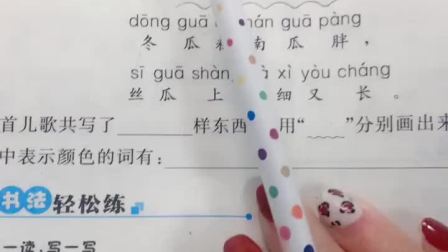 dōng guā nán guā pàng
冬瓜 南瓜胖，
sī guā shàng xì yòu cháng
丝瓜上 细又长。
首儿歌共写了 样东西 用“ ”分别画出来
中表示颜色的词有：
书法轻松练
一读，写一写